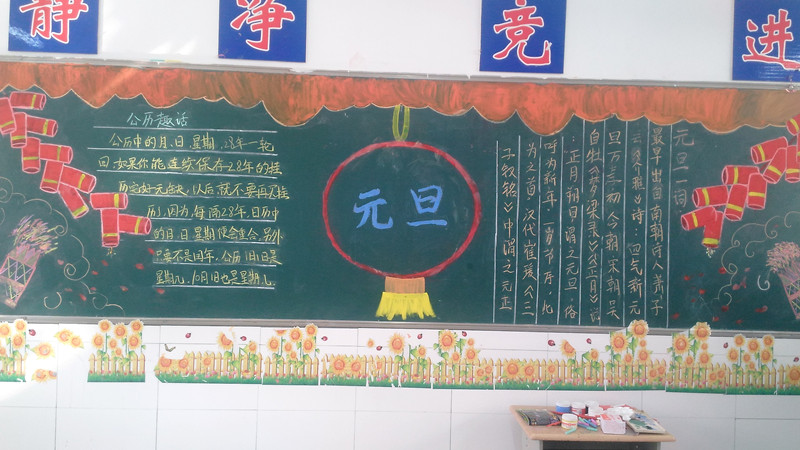 静 净 竞 进
公历趣话
公历中的月、日、星期,28年一轮
回.如果你能连续保存28年的挂
历完好无缺,以后就不要再买挂
历,因为每隔28年,日历中
的月、日、星期便会重合.另外
只要不是闰年,公历1月1日是
星期几,10月1日也是星期几.
元旦
元旦一词
最早出自南朝人萧子
云《介雅》诗:四气新元
旦,万寿初今朝.宋朝吴
自牧《梦梁录》《正月》
:正月朔日,谓之元旦,俗
呼为新年.一岁节序,此
为之首.汉代崔瑗《三
子钗铭》中谓之元正